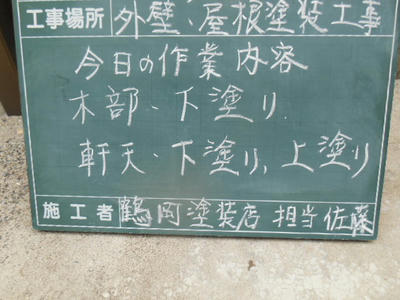 工事場所 外壁、屋根塗装工事
今日の作業内容
木部・下塗り
軒天・下塗り、上塗り
施工者 鶴岡塗装店 担当佐藤